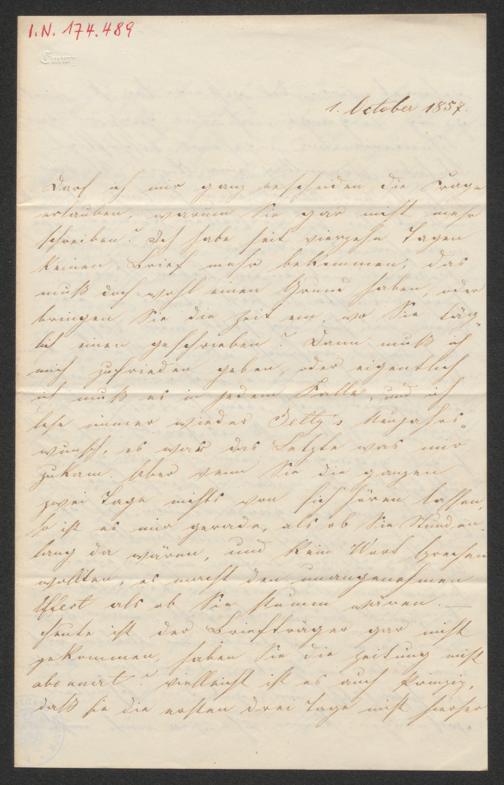 I.N. 174.489
1. October 1857.
Darf ich mir ganz bescheiden die Frage
erlauben, warum Sie gar nicht mehr
schreiben? Ich habe seit vierzehn Tagen
keinen Brief mehr bekommen, das
muß doch wohl einen Grund haben, oder
bringen Sie die Zeit ein, wo Sie täg-
lich einen geschrieben? Dann muß ich
mich zufrieden geben, oder eigentlich
ich muß es in jedem Falle, und ich
lese immer wieder Betty's Neujahrs-
wunsch, es war das Letzte was mir
zukam. Aber wenn Sie die ganzen
zwei Tage nichts von sich hören lassen,
so ist es mir gerade, als ob Sie Stunden
lang da wären, und kein Wort sprechen
wollten, es macht den unangenehmen
Effect als ob Sie stumm wären. —
Heute ist der Briefträger gar nicht
gekommen, haben Sie die Zeitung nicht
abonirt? vielleicht ist es auch Prinzip,
daß sie die ersten drei Tage nicht hierher